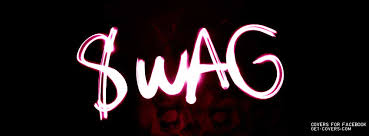 $WAG
COVERS FOR FACEBOOK
GET-COVERS.COM